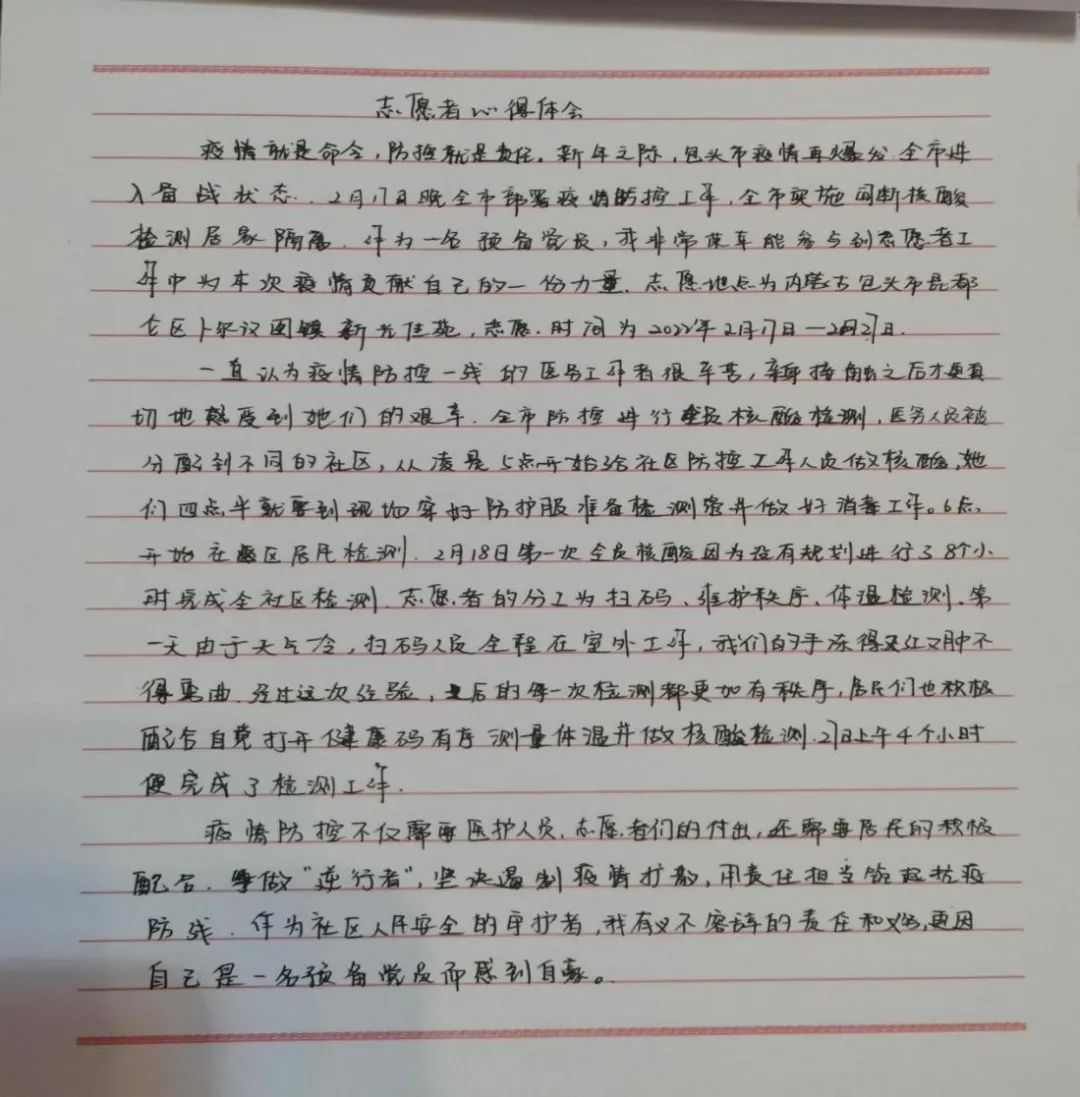 志愿者心得体会
疫情就是命令，防控就是责任。新年之际，包头市疫情再爆发.全市进
入备战状态．2月17日晚全市部署疫情防控工作，全市实施间断核酸
检测居家隔离．作为一名预备党员，我非常荣幸能参与到志愿者工
作中为本次疫情贡献自己的一份力量．志愿地点为内蒙古包头市昆都
仑区卜尔汉图镇新光佳苑，志愿．时间为2022年2月17日—2月27日．
一直认为疫情防控一线的医务工作者很辛苦，接触之后才更真
切地感受到她们的艰辛．全市防控进行全员核酸检测，医务人员被
分配到不同的社区，从凌晨5点开始给社区防控工作人员做核酸，她
们四点半就要到现场穿好防护服准备检测室并做好消毒工作。6点，
开始社区居民检测．2月18日第一次全员核酸因为没有规划进行了8个小
时完成全社区检测．志愿者的分工为扫码、维护秩序、体温检测．第
一天由于天气冷，扫码人员全程在室外工作，我们的手冻得又红又肿不
得弯曲．经过这次经验，之后的每一次检测都更加有秩序，居民们也积极
配合自觉打开健康码有序测量体温并做核酸检测．27日上午4个小时
便完成了检测工作．
疫情防控不仅需要医护人员、志愿者们的付出，还需要居民的积极
配合．争做“逆行者”，坚决遏制疫情扩散，用责任担当筑起抗疫
防线．作为社区人民安全的守护者，我有义不容辞的责任和义务，更因
自己是一名预备党员而感到自豪。